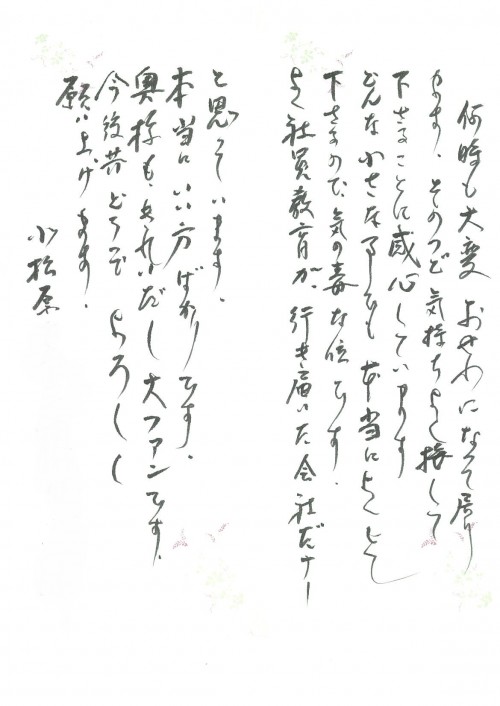 何時も大変おせわになって居り
ます、そのつど気持ちよく接して
下さることに感心しています
どんな小さな事でも本当によくして
下さるので、気の毒な位です。
よく社員教育が、行き届いた会社だナー
と思っています。
本当にいい方ばかりです、
奥様も、きれいだし大ファンです、
今後共どうぞよろしく
願い上げます、
小松原